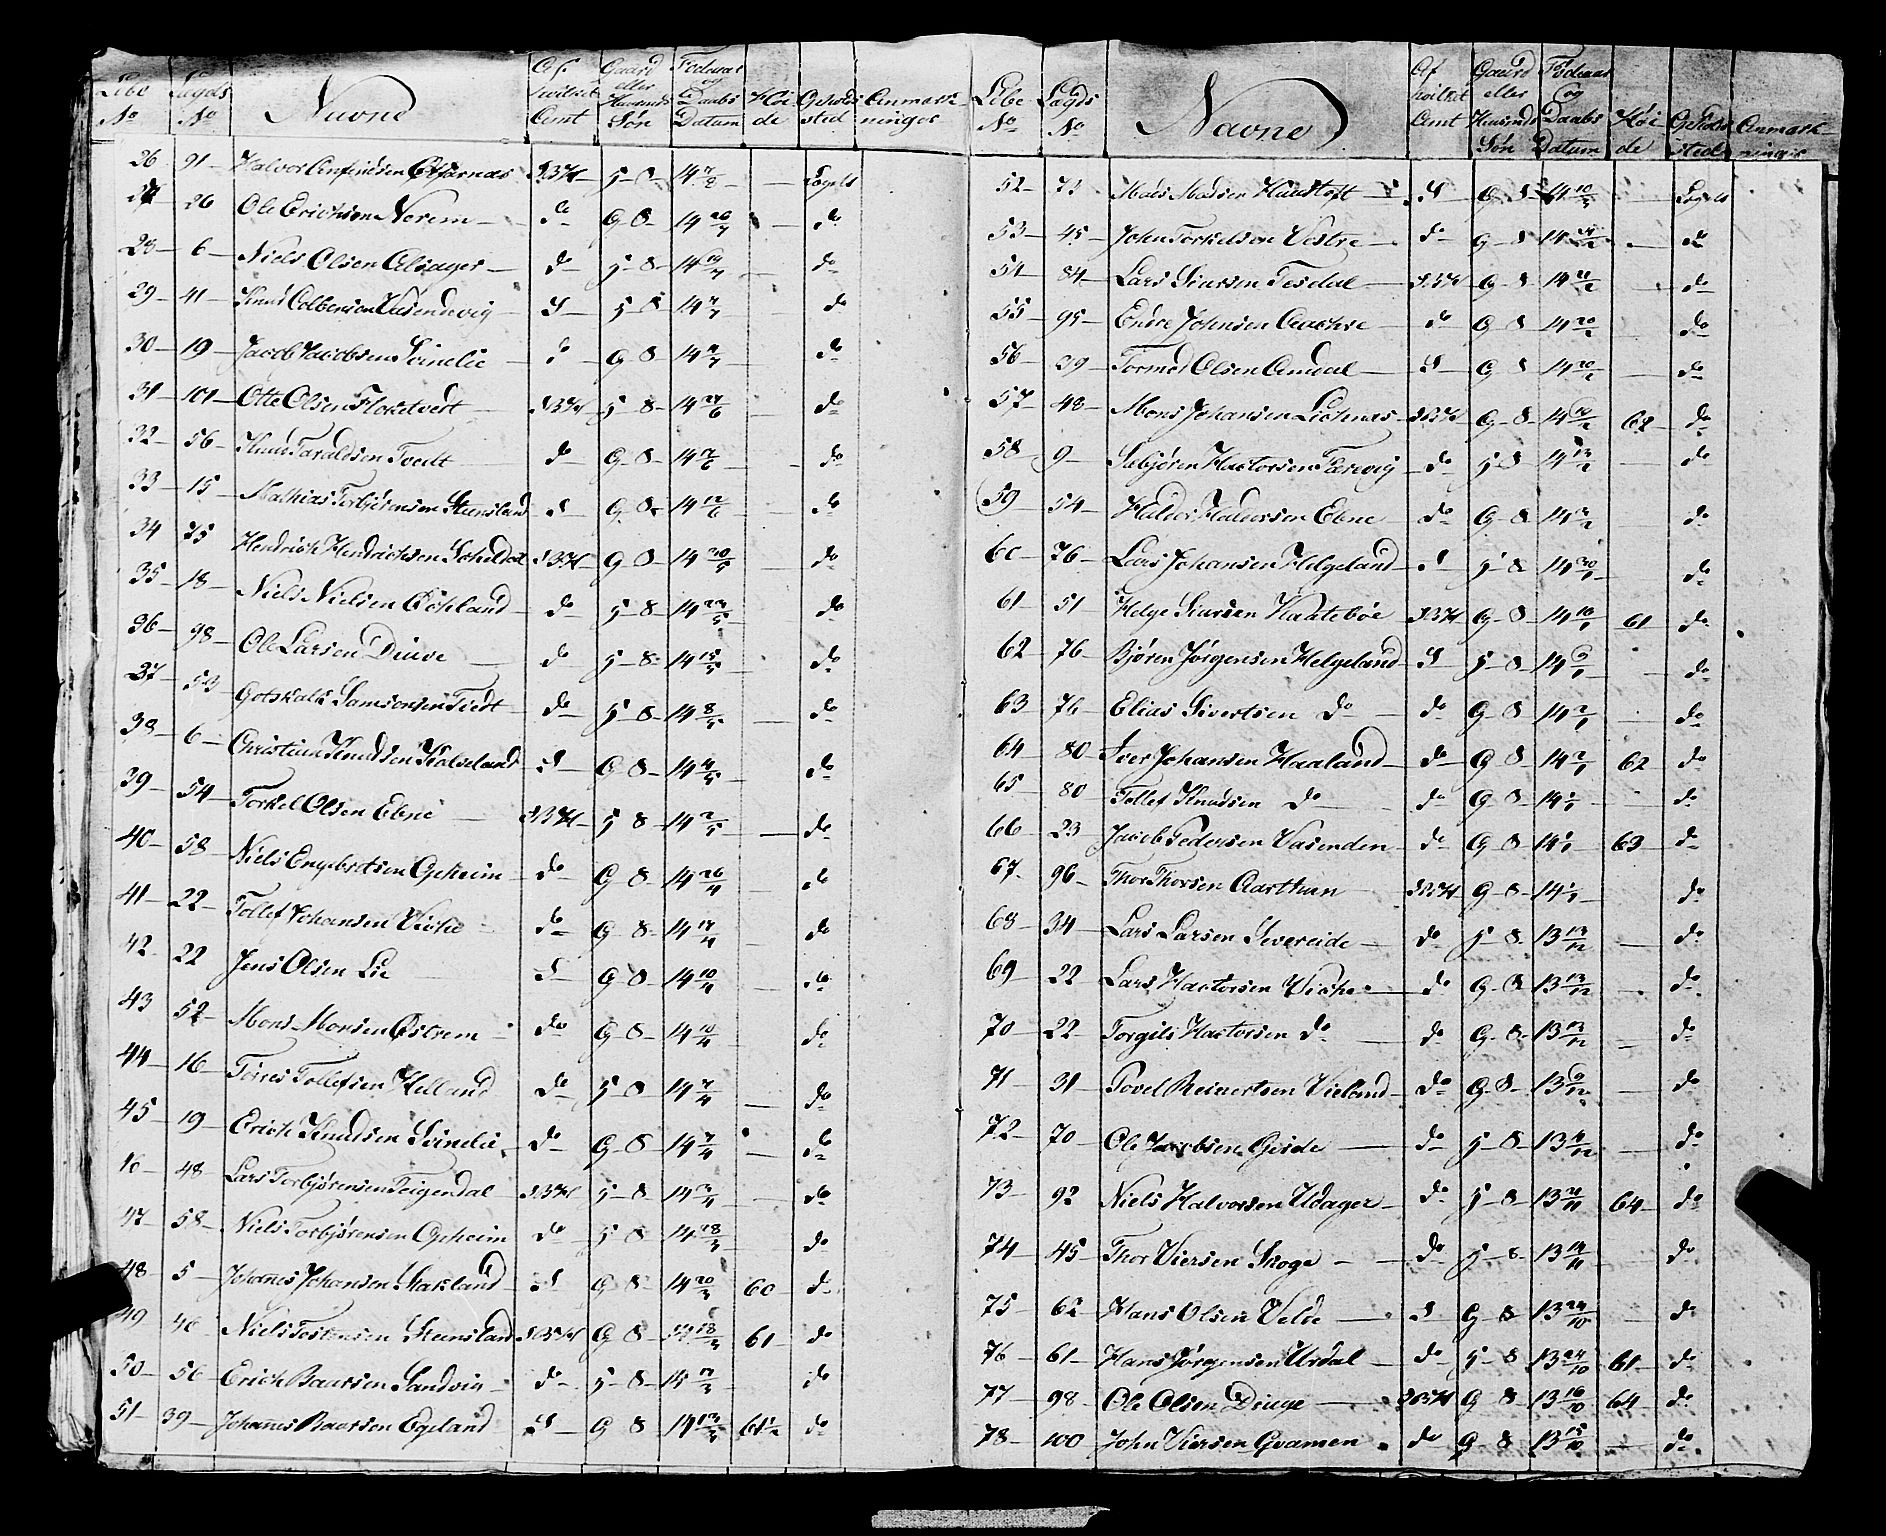 Löbe No Lægds No Navne Af hvilket Amt Gaard eller Huusmds Søn Födeaar og Daabs Datum Höi de Opholds sted Anmærk ninger
26 91 Halvor 14 7/8 — Lægds
27 26 Ole Erichsen Nerem — do G S 14 26/7 — do
28 6 Niels Olsen Alsager — do H S 14 19/7 — do
29 41 Knud — S H S 14 7/7 do
30 19 Jacob Jacobsen Svinelie do G S 14 do
31 101 Otte Olsen SBH H S 14 24/6 — do
32 56 Knud Taraldsen Tvedt do G S 14 — do
33 15 Mathias Torbjörnsen Steensland S G S 14 12/6 do
34 75 Hendrich Hendrichsen SBH G S 14 30/5 — do
35 18 Niels Nielsen Öchland do H S 14 23/5 do
36 98 Ole Larsen do H S 14 15/5 do
37 53 Gotskalk Samsonsen Tvedt do H S 14 8/5 — do
38 6 Christian Knudsen S G S 14 4/5 do
39 54 Torkel Olsen Ebne SBH H S 14 2/5 — do
40 58 Niels Engebretsen Opheim do G S 14 26/4 — do
41 22 Tollef Johansen Viche do G S 14 17/4 — do
42 22 Jens Olsen Lie S G S 14 10/4 — do
43 52 Mons Monsen Östrem do G S 14 10/4 do
44 16 Tönes Tollefsen Helland do H S 14 7/4 — do
45 19 Erich Knudsen Svinelie do G S 14 7/4 — do
46 48 Lars Torbjörnsen Teigendal SBH H S 14 3/4 — do
47 58 Niels Torbjörnsen Opheim do H S 14 28/3 do
48 5 Johannes Johansen Stakland S G S 14 20/3 60 do
49 46 Niels Steensland SBH G S 14 18/3 61 do
50 56 Erich Baarsen Sandvig do H S 14 17/3 do
51 39 Johannes Baarsen Egeland S G S 14 13/3 61½ do
Löbe No Lægds No Navne Af hvilket Amt Gaard eller Huusmds Søn Födeaar og Daabs Datum Höi de Opholds sted Anmærk ninger
52 73 Mads Madsen — S G S 14 10/3 — Lægds
53 45 John Torkelsen Vestre do G S 14 — do
54 84 Lars Siursen Tesdal — SBH G S 14 21/2 — do
55 95 Endre Johnsen do G S 14 20/2 do
56 39 Tormod Olsen Amdal — S G S 14 20/2 — do
57 48 Mons Johansen SBH G S 14 19/2 62 do
58 9 Sebjören Hactorsen do H S 14 13/2 — do
59 54 Haldor Haldorsen Ebne do G S 14 do
60 76 Lars Johansen Helgeland S H S 14 30/1 do
61 51 Helge Siursen SBH G S 14 16/1 61 do
62 76 Björen Jörgensen Helgeland S H S 14 9/1 — do
63 76 Elias Sivertsen do — do G S 14 2/1 — do
64 80 Iver Johansen Haaland do G S 14 2/1 62 do
65 80 Tollef Knudsen do — do G S 14 1/1 do
66 23 Jacob Pedersen Vasenden do G S 14 1/1 63 do
67 96 Thor Thorsen SBH G S 14 1/1 do
68 34 Lars Larsen Severeide do H S 13 13/12 — do
69 22 Lars Hactorsen Viche do G S 13 13/12 do
70 22 Torgils Hactorsen do do G S 13 13/12 — do
71 31 Povel Reinertsen Vieland do G S 13 9/12 — do
72 70 Ole Jacobsen — do H S 13 4/12 — do
73 92 Niels Halvorsen Udager do H S 13 21/11 64 do
74 45 Thor Skoge — do H S 13 14/11 do
75 62 Hans Olsen Velde — S G S 13 24/10 — do
76 61 Hans Jörgensen Urdal — do H S 13 24/10 61 do
77 98 Ole Olsen — SBH G S 13 16/10 64 do
78 100 John do G S 13 15/10 — do